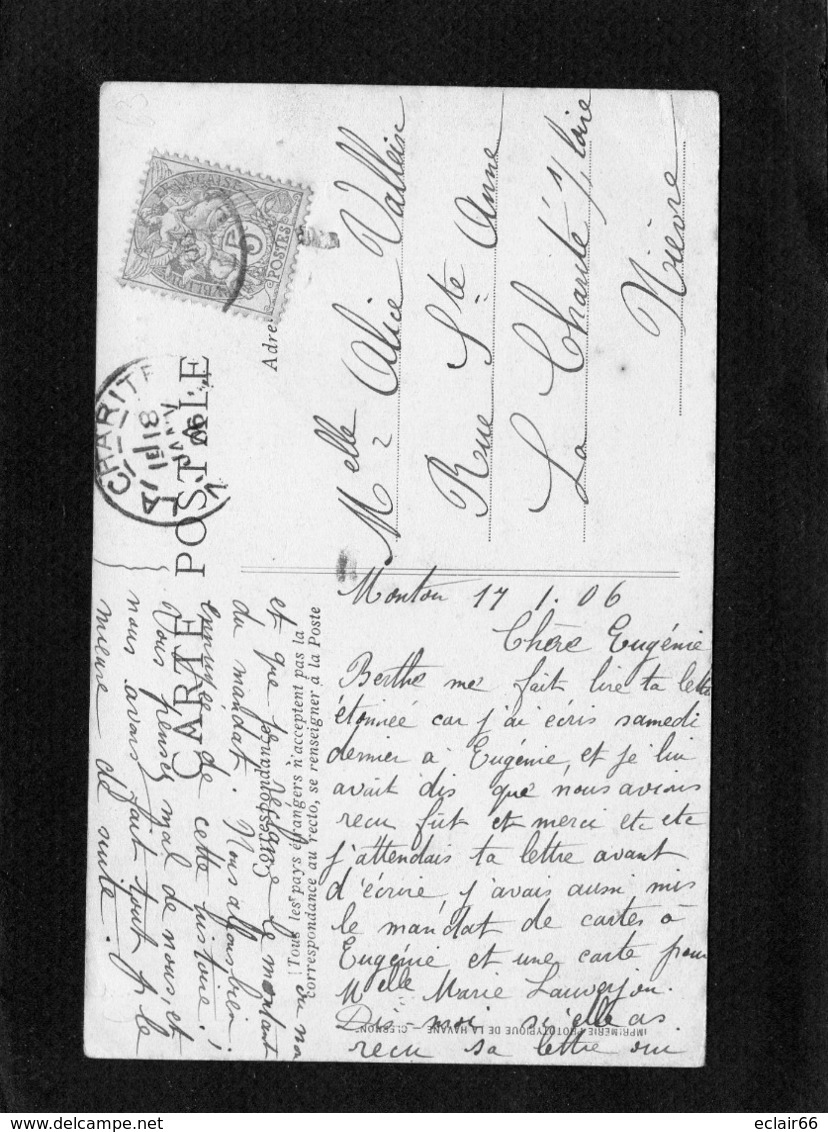 CARTE POSTALE
Correspondance
Tous les pays étrangers n'acceptent pas la
correspondance au recto, se renseigner à la Poste
Adre
FRANÇAISE
POSTES
CHARITE
8
JANV
06
Melle Alice Vallein
Rue Ste Anne
La Charité s/ Loire
Nièvre
17 1. 06
Chère Eugénie
Berthe me fait lire ta lett
étonnée car j'ai écris samedi
dernier à Eugénie, et je lui
avait dis que nous avions
recu fût et merci etc etc
j'attendais ta lettre avant
d'écrire, j'avais aussi mis
le mandat de cartes à
Eugénie et une carte pour
Melle Marie
Dis-moi si elle as
recu sa lettre oui
ou no
et que je le montant
du mandat. Nous allons bien
de cette histoire!
Vous pensez mal de nous, et
nous avons fait tout p. le
mieux de suite.
IMPRIMERIE PHOTOTYPIQUE DE LA HAVANE
eclair66